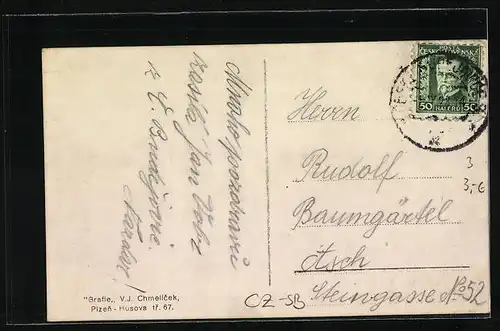 Mnoho pozdravů
zasílá Jan
z Č. Budějovic.
Nazdar!
"Grafie„ V.J. Chmelíček,
Plzeň - Husova tř. 67.
ČESKOSLOVENSKO
50 HALÉŘŮ 50
Herrn
Rudolf
Baumgärtel
Asch
Steingasse No 52
3
3,-€
CZ-SB